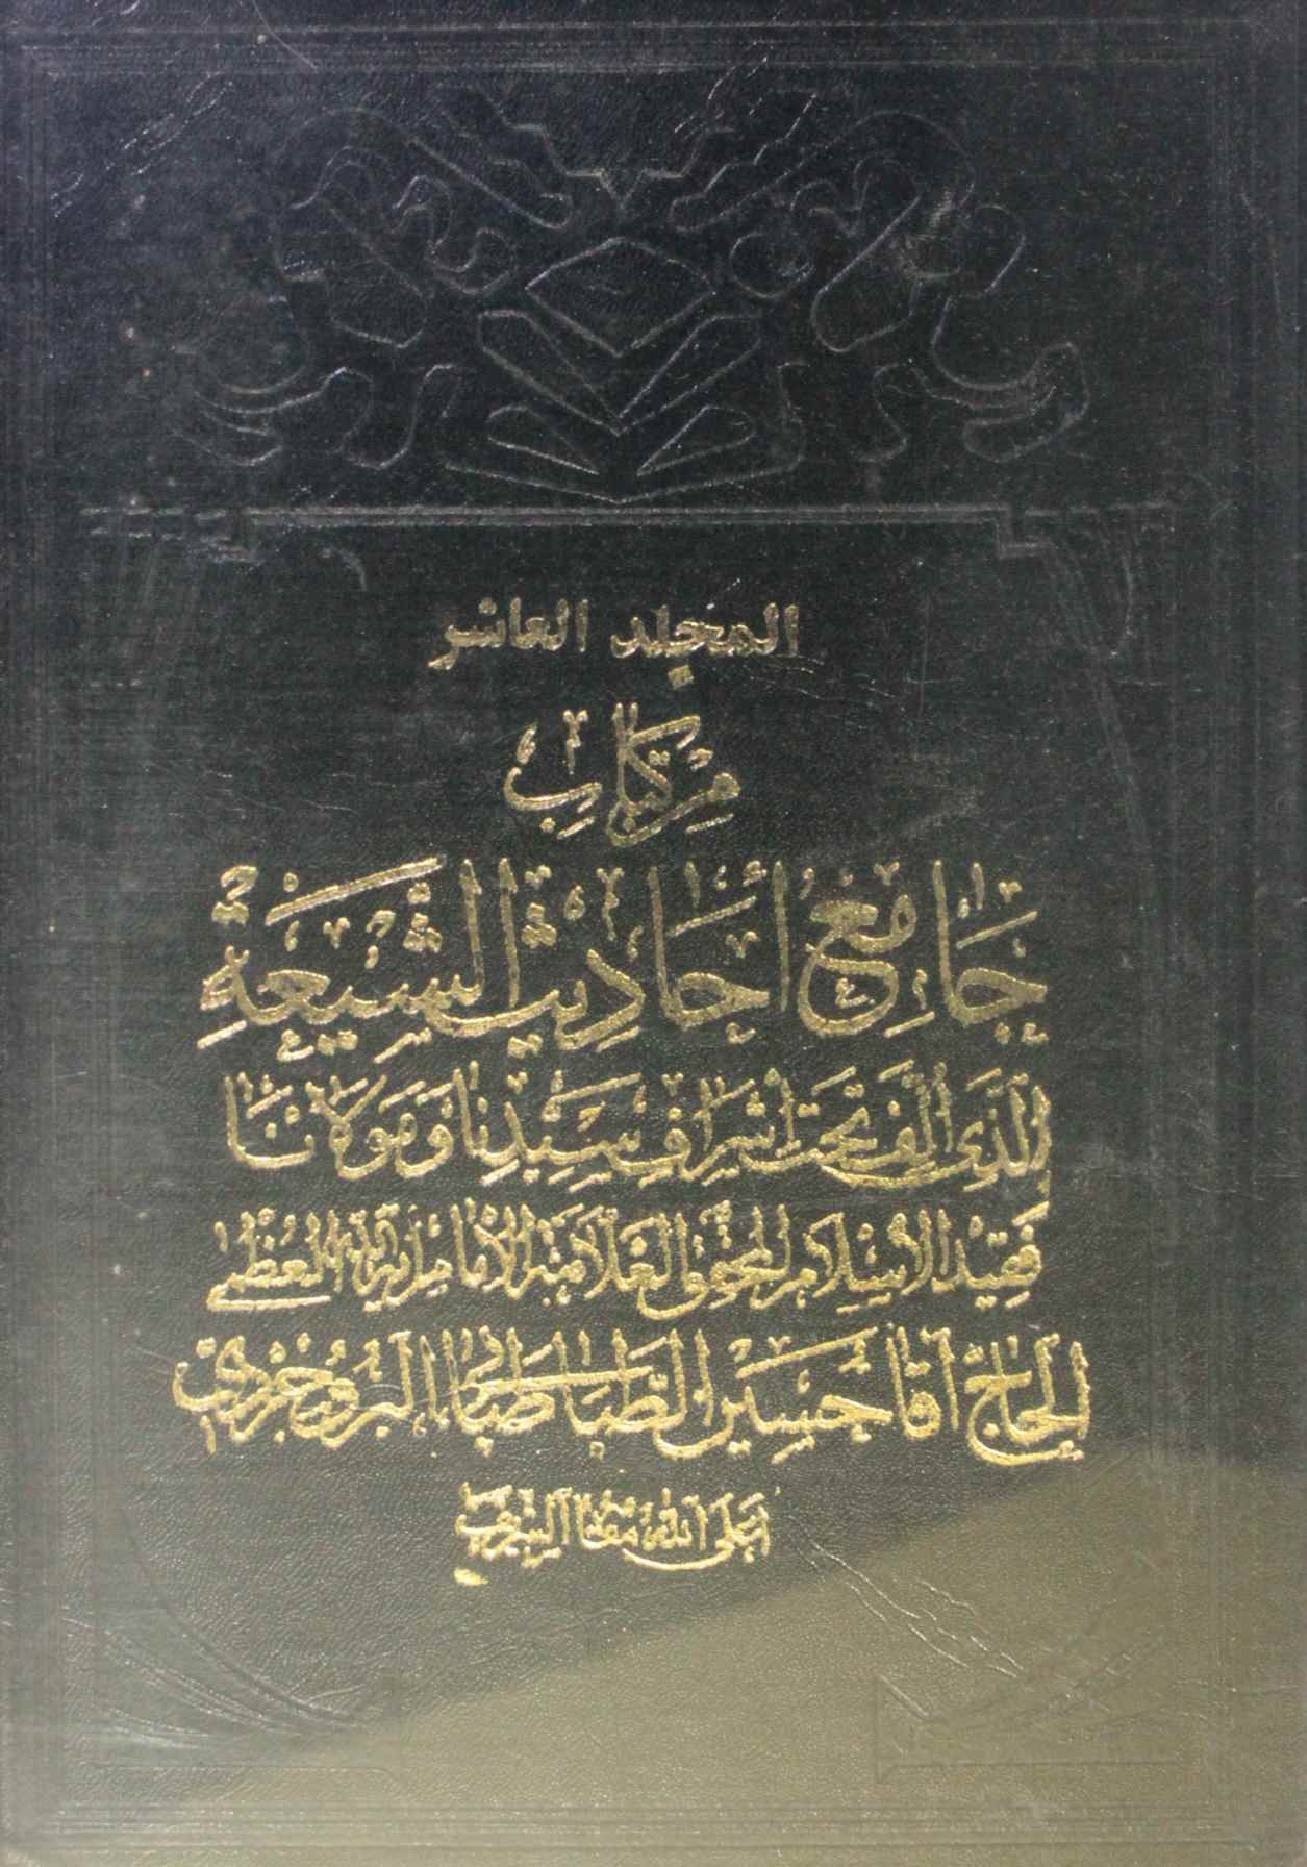 المجلد العاشر
من كتاب
جامع أحاديث الشيعة
الذي ألف تحت إشراف سيدنا ومولانا
فقيد الإسلام المحقق العلامة الإمام آية الله العظمى
الحاج آقا حسين الطباطبائي البروجردي
أعلى الله مقامه الشريف